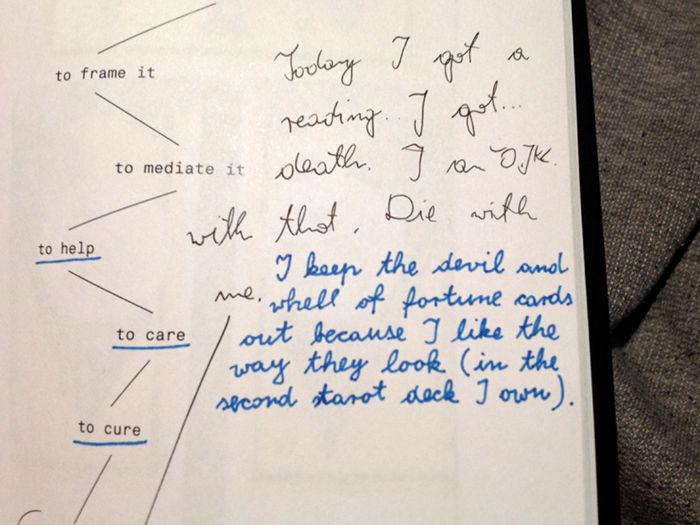 to frame it
to mediate it
to help
to care
to cure
Today I got a
reading. I got...
death. I am O.K.
with that. Die with
me.
I keep the devil and
whell of fortune cards
out because I like the
way they look (in the
second tarot deck I own).